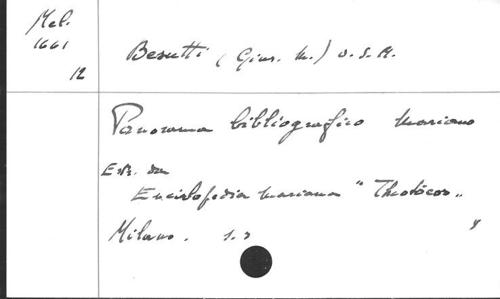 Mel.
1661
12
Besutti (Gius. M.) O.S.M.
Panorama bibliografico Mariano
Estr. da
Enciclopedia mariana "Theotócos"
Milano. s.d.